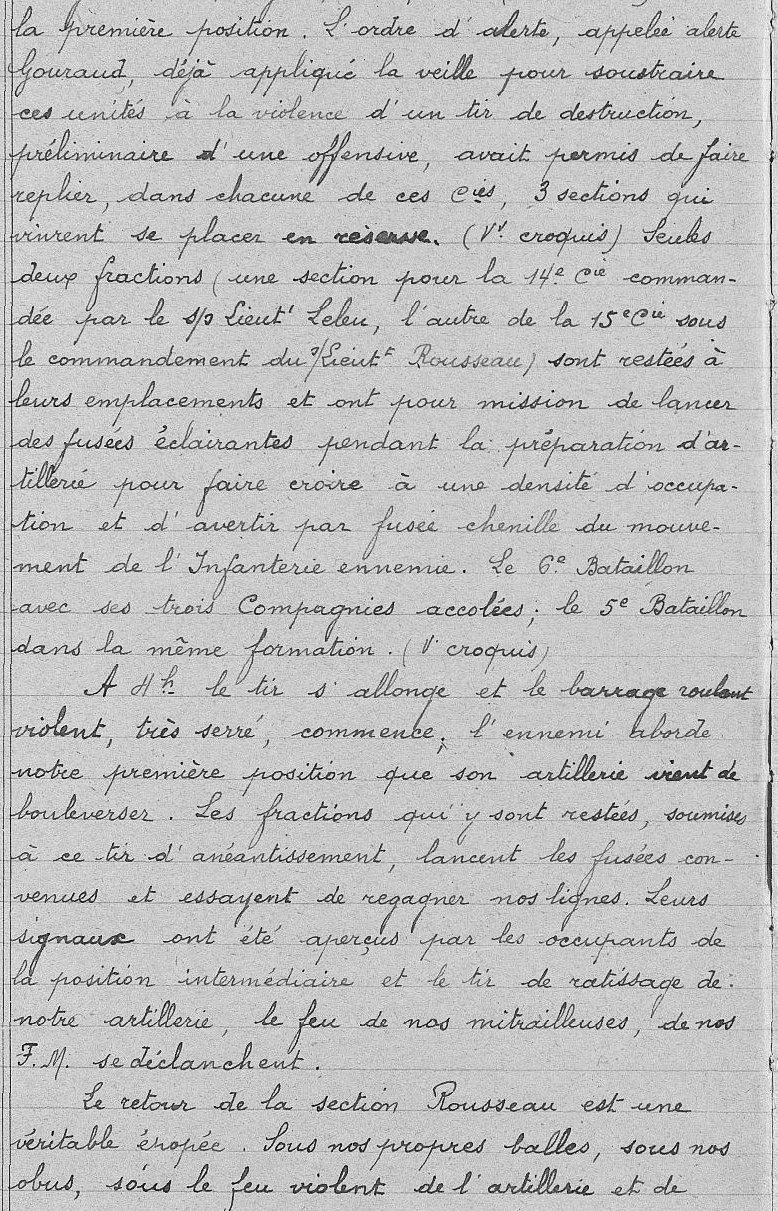 la première position. L'ordre d'alerte, appelée alerte
Gouraud, déjà appliqué la veille pour soustraire
ces unités à la violence d'un tir de destruction,
préliminaire d'une offensive, avait permis de faire
replier, dans chacune de ces Cies, 3 sections qui
vinrent se placer en réserve. (Vr croquis) Seules
deux fractions (une section pour la 14e Cie comman-
dée par le s/s Lieutt Leleu, l'autre de la 15e Cie sous
le commandement du s/Lieutt Rousseau) sont restées à
leurs emplacements et ont pour mission de lancer
des fusées éclairantes pendant la préparation d'ar-
tillerie pour faire croire à une densité d'occupa-
tion et d'avertir par fusée chenille du mouve-
ment de l'Infanterie ennemie. Le 6e Bataillon
avec ses trois Compagnies accolées; le 5e Bataillon
dans la même formation. (V. croquis)
A 4h le tir s'allonge et le barrage roulant
violent, très serré, commence; l'ennemi aborde
notre première position que son artillerie vient de
bouleverser. Les fractions qui y sont restées, soumises
à ce tir d'anéantissement, lancent les fusées con-
venues et essayent de regagner nos lignes. Leurs
signaux ont été aperçus par les occupants de
la position intermédiaire et le tir de ratissage de
notre artillerie, le feu de nos mitrailleuses, de nos
F.M. se déclanchent.
Le retour de la section Rousseau est une
véritable épopée. Sous nos propres balles, sous nos
obus, sous le feu violent de l'artillerie et de